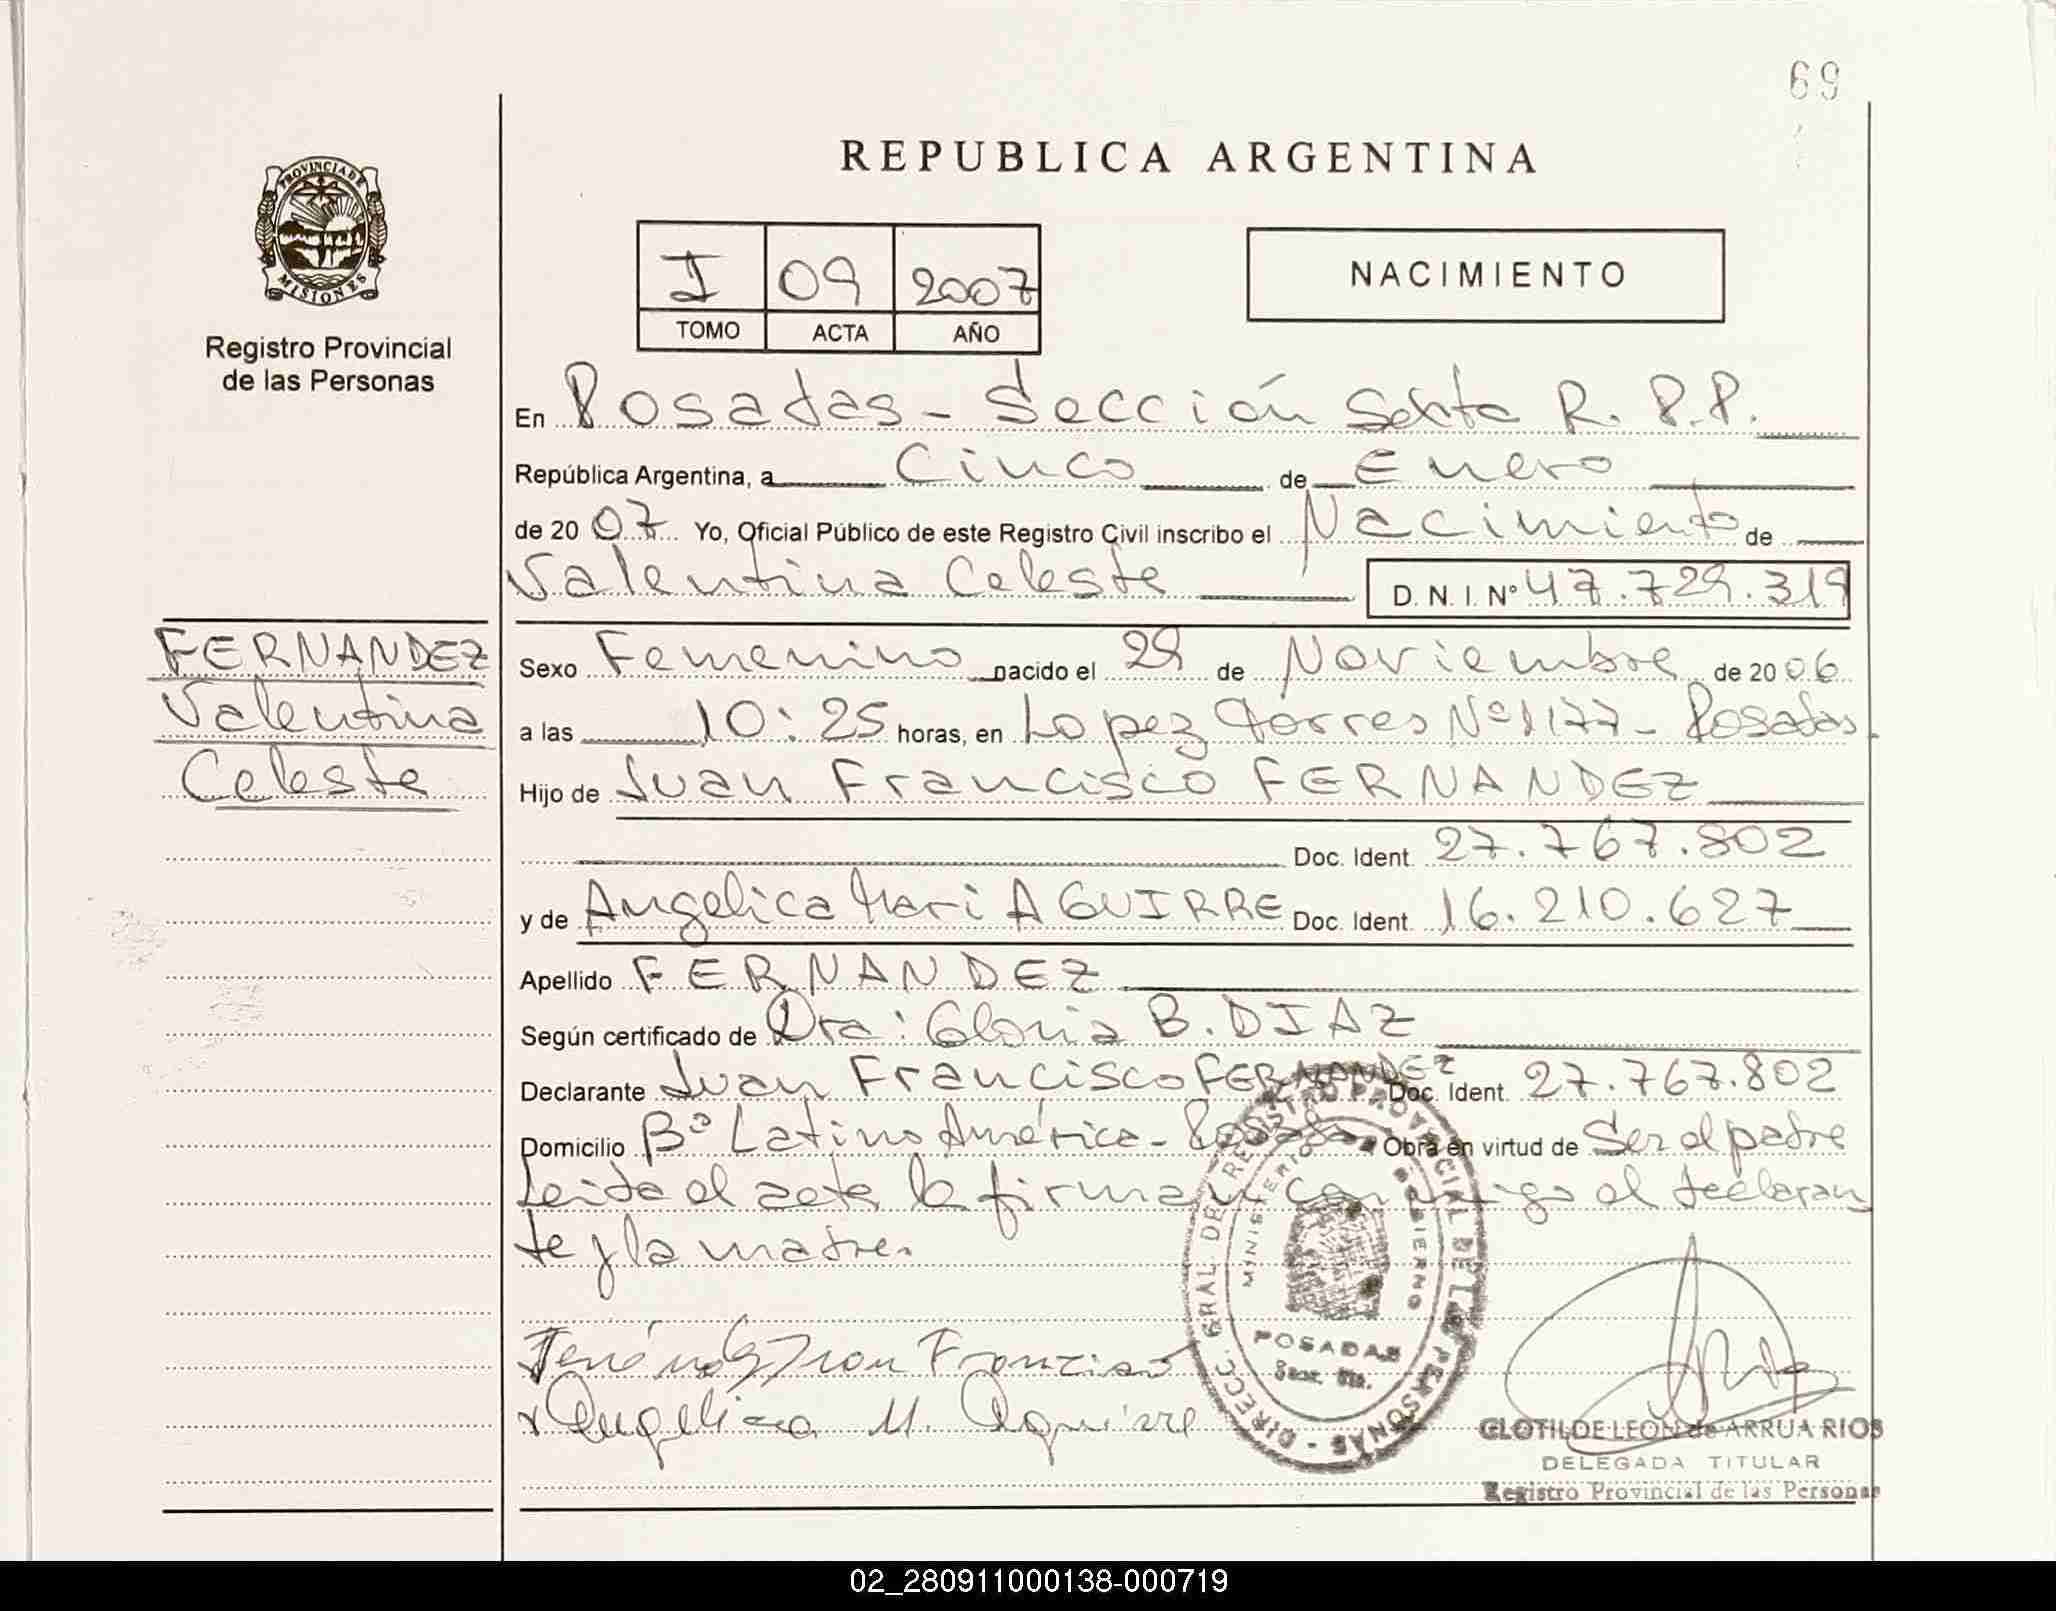 69
REPUBLICA ARGENTINA
PROVINCIA DE
MISIONES
Registro Provincial
de las Personas
I 09 2007
TOMO ACTA AÑO
NACIMIENTO
En Posadas - Sección Sexta R.P.P.
República Argentina, a Cinco de Enero
de 2007 Yo, Oficial Público de este Registro Civil inscribo el Nacimiento de
Valentina Celeste D.N.I. N° 47.729.319
FERNANDEZ
Valentina
Celeste
Sexo Femenino nacido el 29 de Noviembre de 2006
a las 10:25 horas, en Lopez Torres Nº 1177 - Posadas
Hijo de Juan Francisco FERNANDEZ
Doc. Ident. 27.767.802
y de Angelica Mari A GUIRRE Doc. Ident. 16.210.627
Apellido FERNANDEZ
Según certificado de Dra: Gloria B. DIAZ
Declarante Juan Francisco FERNANDEZ Doc. Ident. 27.767.802
Domicilio Bº Latino América - Posadas Obra en virtud de Ser el padre
Leida el acta la firman conmigo el declaran
te y la madre.
Juan Francisco
Angelica M. Aguirre
DIRECC. GRAL. DEL REGISTRO PROVINCIAL DE LAS PERSONAS
MINISTERIO DE GOBIERNO
POSADAS
CLOTILDE LEON de ARRUA RIOS
DELEGADA TITULAR
Registro Provincial de las Personas
02_280911000138-000719